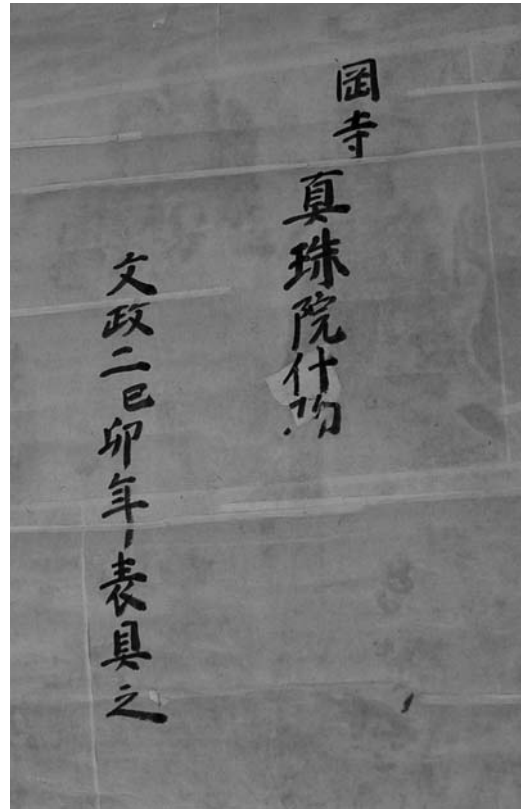 岡寺 真珠院什物
文政二己卯年表具之